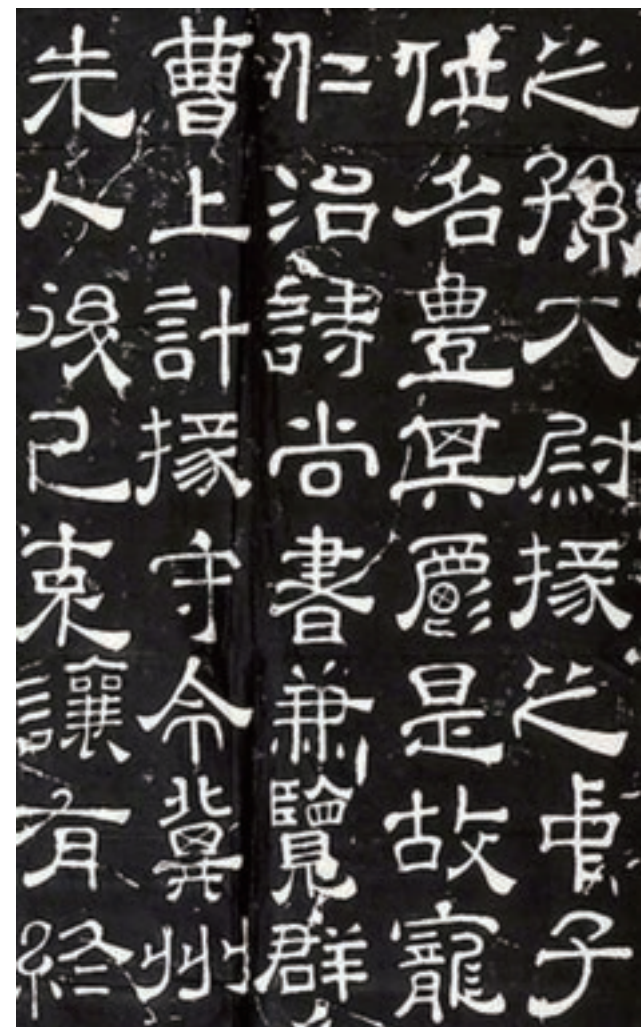 之孫大尉掾之冑子
者豊其爵是故寵
仁治詩尚書兼覽群
曹上計掾守令冀州
朱人後己束讓有終